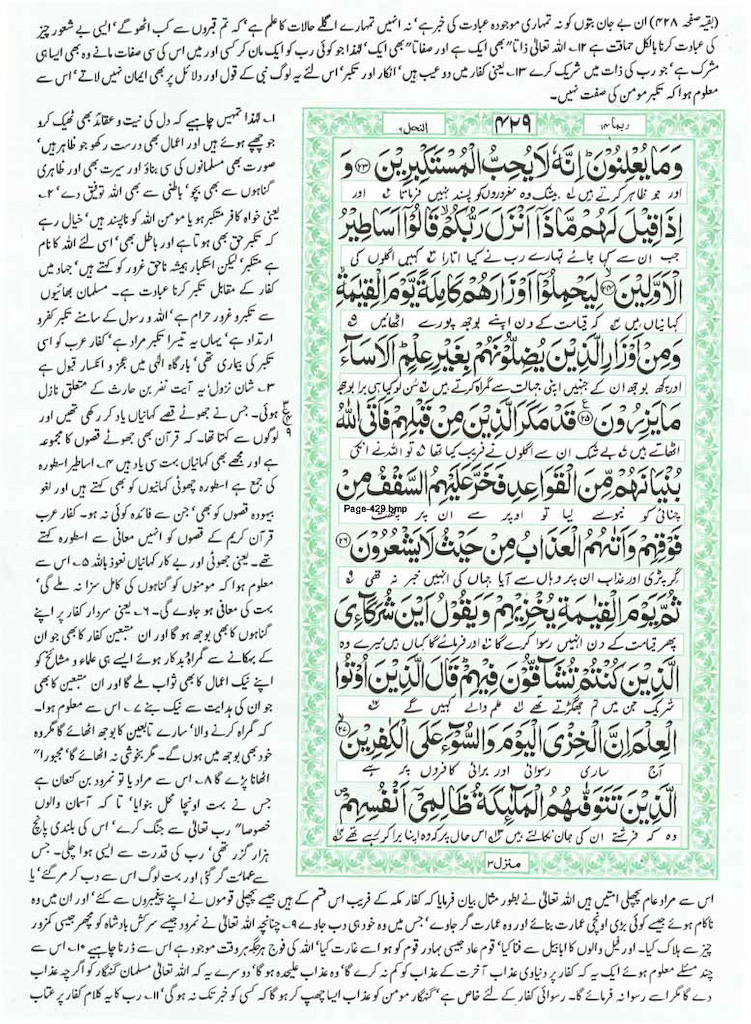 (بقیہ صفحہ ۴۲۸) ان بے جان بتوں کو نہ تمہاری موجودہ عبادت کی خبر ہے' نہ انہیں تمہارے اگلے حالات کا علم ہے' کہ تم قبروں سے کب اٹھو گے' ایسی بے شعور چیز
کی عبادت کرنا بالکل حماقت ہے ۱۲۔ اللہ تعالٰی ذاتا" بھی ایک ہے اور صفاتا" بھی ایک' لہٰذا جو کوئی رب کو ایک مان کر کسی اور میں اس کی سی صفات مانے وہ بھی ایسا ہی
مشرک ہے' جو رب کی ذات میں شریک کرے ۱۳۔ یعنی کفار میں دو عیب ہیں' انکار اور تکبر' اس لئے یہ لوگ نبی کے قول اور دلائل پر بھی ایمان نہیں لاتے' اس سے
معلوم ہوا کہ تکبر مومن کی صفت نہیں۔
ربما ۱۴
۴۲۹
النحل ۱۶
وَمَا یُعْلِنُوْنَ اِنَّهٗ لَا یُحِبُّ الْمُسْتَكْبِرِیْنَ ۲۳ وَ
اور جو ظاہر کرتے ہیں بیشک وہ مغروروں کو پسند نہیں فرماتا اور
اِذَا قِیْلَ لَهُمْ مَّاذَاۤ اَنْزَلَ رَبُّكُمْ قَالُوْۤا اَسَاطِیْرُ
جب ان سے کہا جائے تمہارے رب نے کیا اتارا کہیں اگلوں کی
الْاَوَّلِیْنَ ۲۴ لِیَحْمِلُوْۤا اَوْزَارَهُمْ كَامِلَةً یَّوْمَ الْقِیٰمَةِ
کہانیاں ہیں کہ قیامت کے دن اپنے بوجھ پورے اٹھائیں
وَمِنْ اَوْزَارِ الَّذِیْنَ یُضِلُّوْنَهُمْ بِغَیْرِ عِلْمٍ اَلَا سَآءَ
اور کچھ بوجھ ان کے جنہیں اپنی جہالت سے گمراہ کرتے ہیں سن لو کیا ہی برا بوجھ
مَا یَزِرُوْنَ ۲۵ قَدْ مَكَرَ الَّذِیْنَ مِنْ قَبْلِهِمْ فَاَتَى اللّٰهُ
اٹھاتے ہیں بے شک ان سے اگلوں نے فریب کیا تھا تو اللہ نے انکی
بُنْیَانَهُمْ مِّنَ الْقَوَاعِدِ فَخَرَّ عَلَیْهِمُ السَّقْفُ مِنْ
چنائی کو نیو سے لیا تو اوپر سے ان پر چھت
Page-429.bmp
فَوْقِهِمْ وَاَتٰىهُمُ الْعَذَابُ مِنْ حَیْثُ لَا یَشْعُرُوْنَ ۲۶
گر پڑی اور عذاب ان پر وہاں سے آیا جہاں کی انہیں خبر نہ تھی
ثُمَّ یَوْمَ الْقِیٰمَةِ یُخْزِیْهِمْ وَیَقُوْلُ اَیْنَ شُرَكَآءِیَ
پھر قیامت کے دن انہیں رسوا کرے گا اور فرمائے گا کہاں ہیں میرے وہ
الَّذِیْنَ كُنْتُمْ تُشَآقُّوْنَ فِیْهِمْ قَالَ الَّذِیْنَ اُوْتُوا
شریک جن میں تم جھگڑتے تھے علم والے کہیں گے
الْعِلْمَ اِنَّ الْخِزْیَ الْیَوْمَ وَالسُّوْٓءَ عَلَى الْكٰفِرِیْنَ ۲۷
آج ساری رسوائی اور برائی کافروں پر ہے
الَّذِیْنَ تَتَوَفّٰىهُمُ الْمَلٰٓىِٕكَةُ ظَالِمِیْۤ اَنْفُسِهِمْ
وہ کہ فرشتے ان کی جان نکالتے ہیں اس حال پر کہ وہ اپنا برا کر رہے تھے
منزل ۳
۱۔ لہٰذا تمہیں چاہیے کہ دل کی نیت و عقائد بھی ٹھیک کرو
جو چھپے ہوئے ہیں اور اعمال بھی درست رکھو جو ظاہر ہیں'
صورت بھی مسلمانوں کی سی بناؤ اور سیرت بھی اور ظاہری
گناہوں سے بھی بچو' باطنی سے بھی اللہ توفیق دے' ۲۔
یعنی خواہ کافر متکبر ہو یا مومن اللہ کو ناپسند ہیں' خیال رہے
کہ تکبر حق بھی ہوتا ہے اور باطل بھی' اسی لئے اللہ کا نام
ہے متکبر' لیکن استکبار ہمیشہ ناحق غرور کو کہتے ہیں' جہاد میں
کفار کے مقابل تکبر کرنا عبادت ہے۔ مسلمان بھائیوں
سے تکبر و غرور حرام ہے' اللہ و رسول کے سامنے تکبر کفر و
ارتداد ہے' یہاں یہ تیسرا تکبر مراد ہے' کفار عرب کو اسی
تکبر کی بیماری تھی' بارگاہ الٰہی میں عجز و انکسار قبول ہے
۳۔ شان نزول' یہ آیت نضر بن حارث کے متعلق نازل
ہوئی۔ جس نے جھوٹے قصے کہانیاں یاد کر رکھی تھیں اور
لوگوں سے کہتا تھا۔ کہ قرآن بھی جھوٹے قصوں کا مجموعہ
ہے اور مجھے بھی کہانیاں بہت سی یاد ہیں ۴۔ اساطیر اسطورہ
کی جمع ہے اسطورہ چھوٹی کہانیوں کو بھی کہتے ہیں اور لغو
بیہودہ قصوں کو بھی' جن سے فائدہ کوئی نہ ہو۔ کفار عرب
قرآن کریم کے قصوں کو انہیں معانی سے اسطورہ کہتے
تھے۔ یعنی جھوٹی اور بے کار کہانیاں نعوذ باللہ ۵۔ اس سے
معلوم ہوا کہ مومنوں کو گناہوں کی کامل سزا نہ ملے گی'
بہت کی معافی ہو جاوے گی۔ ۶۔ یعنی سردار کفار پر اپنے
گناہوں کا بھی بوجھ ہو گا اور ان متبعین کفار کا بھی جو ان
کے بہکانے سے گمراہ بدکار ہوئے ایسے ہی علماء و مشائخ کو
اپنے نیک اعمال کا بھی ثواب ملے گا اور ان متبعین کا بھی
جو ان کی ہدایت سے نیک بنے ۷۔ اس سے معلوم ہوا۔
کہ گمراہ کرنے والا' سارے تابعین کا بوجھ اٹھائے گا مگر وہ
خود بھی بوجھ میں ہوں گے۔ مگر بخوشی نہ اٹھائے گا' مجبورا"
اٹھانا پڑے گا ۸۔ اس سے مراد یا تو نمرود بن کنعان ہے
جس نے بہت اونچا محل بنوایا' تا کہ آسمان والوں
خصوصا" رب تعالٰی سے جنگ کرے' اس کی بلندی پانچ
ہزار گز تھی' رب کی قدرت سے ایسی ہوا چلی۔ جس
سے عمارت گر گئی اور بہت لوگ اس سے دب کر مر گئے' یا
اس سے مراد عام پچھلی امتیں ہیں اللہ تعالٰی نے بطور مثال بیان فرمایا کہ کفار مکہ کے فریب اس قسم کے ہیں جیسے پچھلی قوموں نے اپنے پیغمبروں سے کئے' اور ان میں وہ
ناکام ہوئے جیسے کوئی بڑی اونچی عمارت بنائے اور وہ عمارت گر جاوے' جس میں وہ خود ہی دب جاوے ۹۔ چنانچہ اللہ تعالٰی نے نمرود جیسے سرکش بادشاہ کو مچھر جیسی کمزور
چیز سے ہلاک کیا۔ اور فیل والوں کا ابابیل سے فنا کیا' قوم عاد جیسی بہادر قوم کو ہوا سے غارت کیا' اللہ کی فوج ہر جگہ ہر وقت موجود ہے اس سے ڈرنا چاہیے ۱۰۔ اس سے
چند مسئلے معلوم ہوئے ایک یہ کہ کفار پر دنیاوی عذاب آخرت کے عذاب کو کم نہ کرے گا' وہ عذاب علیحدہ ہو گا' دوسرے یہ کہ اللہ تعالٰی مسلمان گنہگار کو اگرچہ عذاب
دے گا مگر اسے رسوا نہ فرمائے گا۔ رسوائی کفار کے لئے خاص ہے' گنہگار مومن کو عذاب ایسا چھپ کر ہو گا کہ کسی کو خبر تک نہ ہو گی' ۱۱۔ رب کا یہ کلام کفار پر عتاب